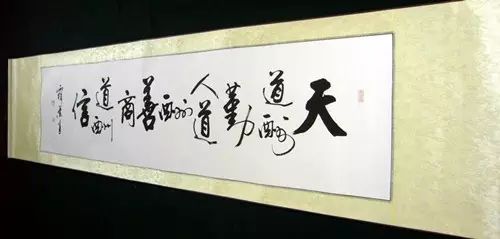 天道酬勤人道酬善商道酬信